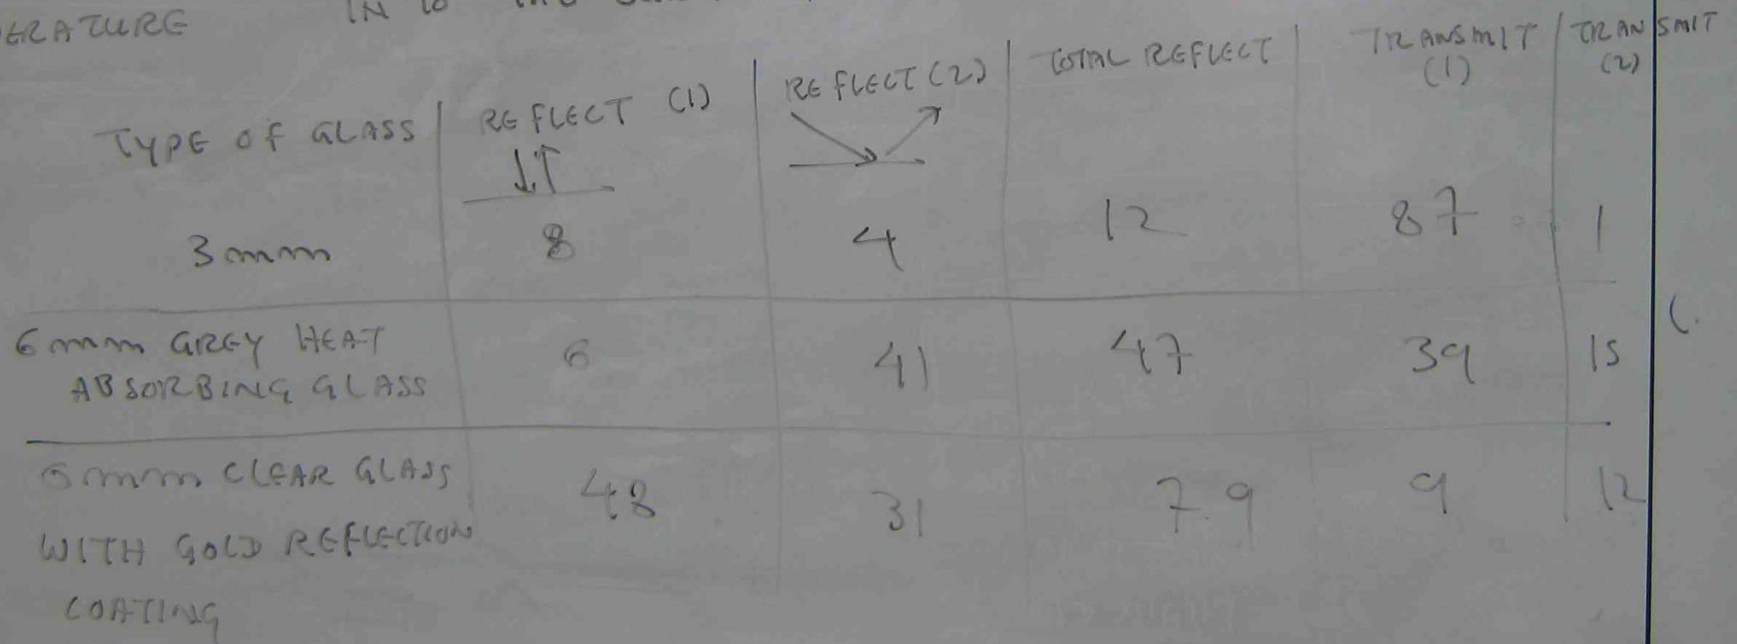 ERATURE IN TO THE
TYPE OF GLASS REFLECT (1) REFLECT (2) TOTAL REFLECT TRANSMIT (1) TRANSMIT (2)
3mm 8 4 12 87 1
6mm GREY HEAT ABSORBING GLASS 6 41 47 39 15
6mm CLEAR GLASS 48 31 79 9 12
WITH GOLD REFLECTION
COATING